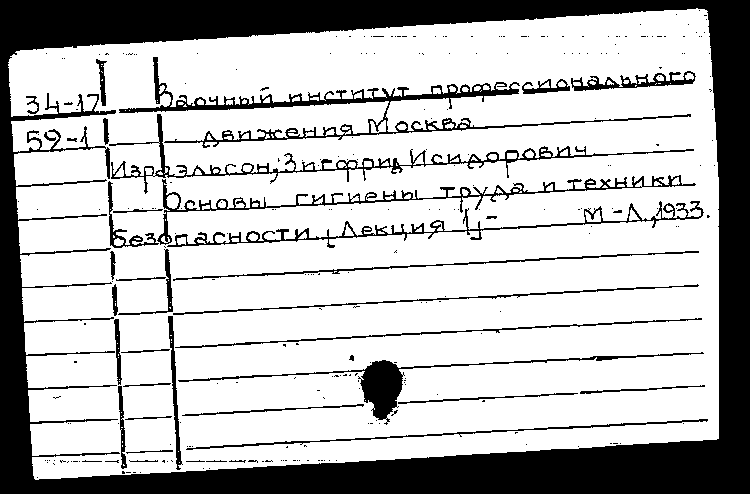 34-17 Заочный институт профессионального
59-1 движения Москва
Израэльсон, Зигфрид Исидорович
Основы гигиены труда и техники
безопасности. [Лекция 1]- М-Л., 1933.